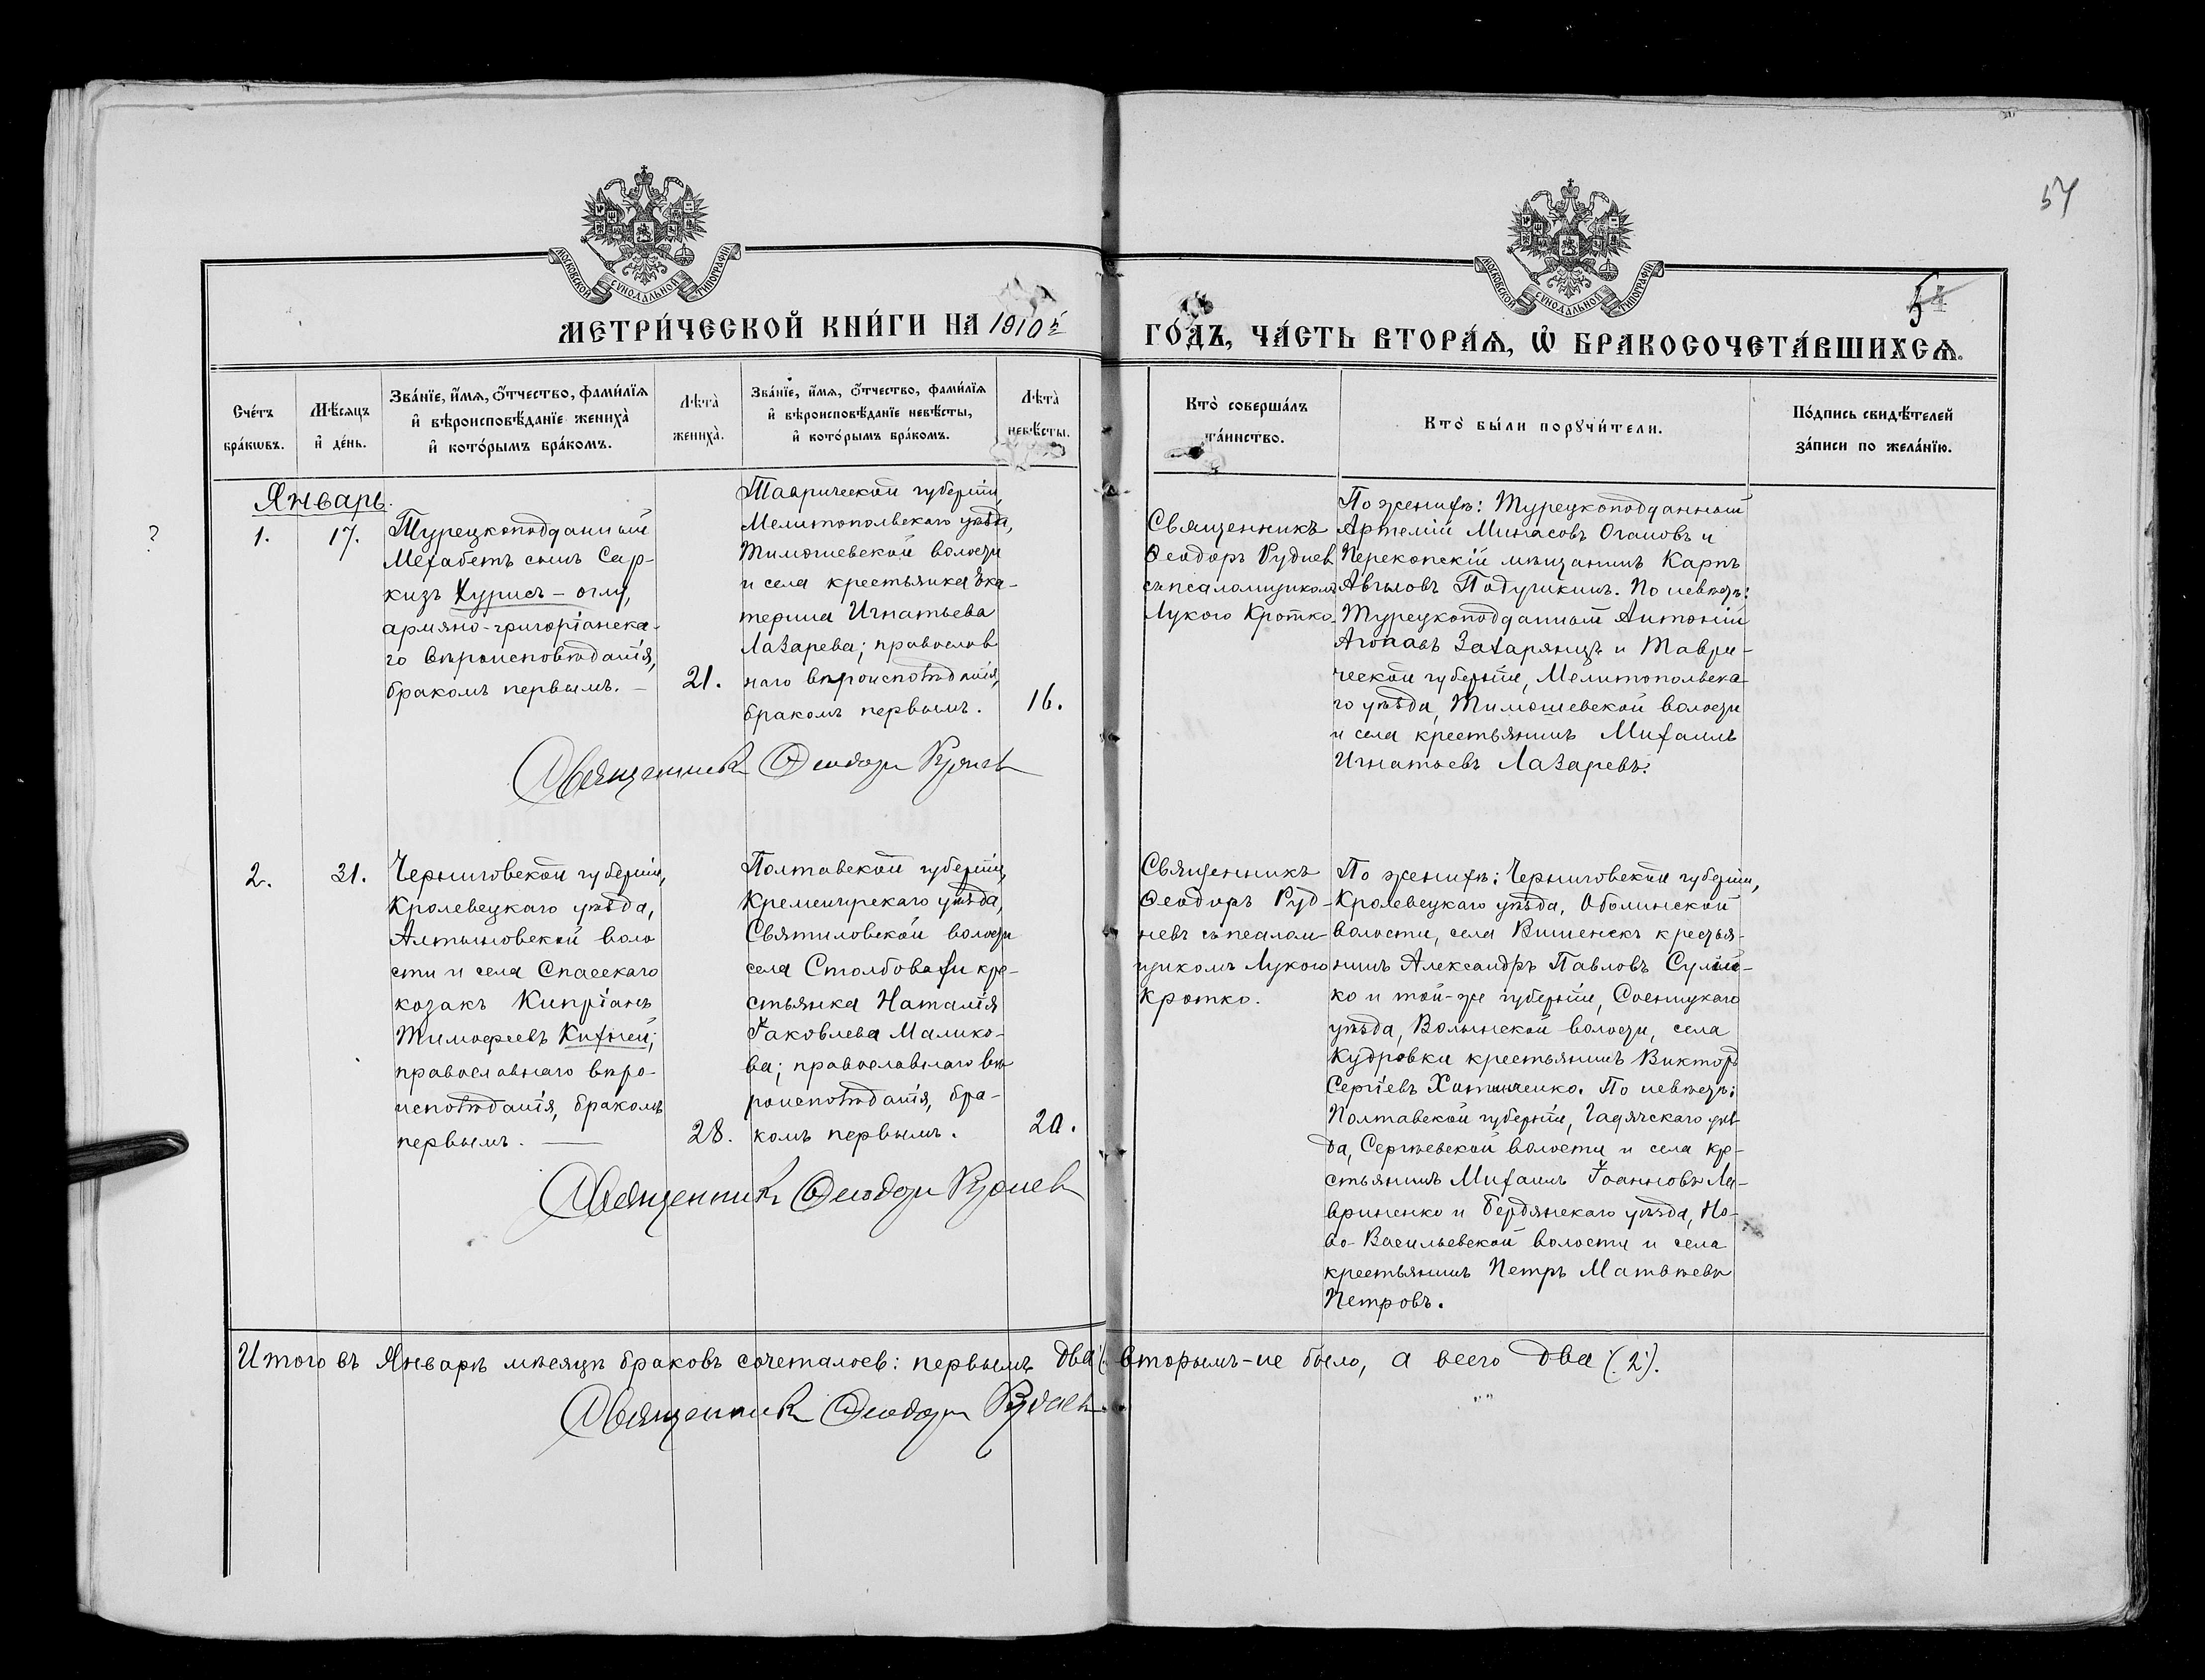 54
МОСКОВСКОЙ СѴНОДАЛЬНОЙ ТИПОГРАФІИ
МОСКОВСКОЙ СѴНОДАЛЬНОЙ ТИПОГРАФІИ
МЕТРИ́ЧЕСКОЙ КНИ́ГИ НА 1910й
ГО́ДЪ, ЧА́СТЬ ВТОРА́Ѧ, Ѡ҆ БРАКОСОЧЕТА́ВШИХСѦ.
Сче́тъ
бра́кѡвъ.
Мѣ́сѧцъ
и҆ де́нь.
Зва́нїе, и҆́мѧ, ѻ҆́тчество, фами́лїѧ
и҆ вѣроисповѣ́данїе жениха̀
и҆ кото́рымъ бра́комъ.
Лѣта̀
жениха̀.
Зва́нїе, и҆́мѧ, ѻ҆́тчество, фами́лїѧ
и҆ вѣроисповѣ́данїе невѣ́сты,
и҆ кото́рымъ бра́комъ.
Лѣта̀
невѣ́сты.
Кто̀ соверша́лъ
та́инство.
Кто̀ бы́ли порꙋчи́тели.
По́дпись свидѣ́телей
за́писи по жела́нїю.
Январь.
?
1.
17.
Турецкоподданный
Мехабетъ сынъ Сар-
кизъ Хурисъ-оглу,
армяно-григоріанска-
го вѣроисповѣданія,
бракомъ первымъ. —
21.
Таврической губерніи,
Мелитопольскаго уѣзда,
Тимошевской волости
и села крестьянка Ека-
терина Игнатьева
Лазарева; православ
наго вѣроисповѣданія,
бракомъ первымъ.
16.
Священникъ Ѳеодоръ Руднев
Священникъ
Ѳеодоръ Руднев
съ псаломщикомъ
Лукою Кротко.
По женихѣ: Турецкоподданный
Артемій Минасовъ Огановъ и
Перекопскій мѣщанинъ Карпъ
Подушкинъ. По невѣстѣ:
Турецкоподданный Антоній
Агопавъ Захарянцъ и Таври-
ческой губерніи, Мелитопольска-
го уѣзда, Тимошевской волости
и села крестьянинъ Михаилъ
Игнатьевъ Лазаревъ.
2.
31.
Черниговской губерніи,
Кролевецкаго уѣзда,
Алтыновской воло
сти и села Спасскаго
козакъ Кипріанъ
Тимофеевъ Кихней;
православнаго вѣро-
исповѣданія, бракомъ
первымъ. —
28.
Полтавской губерніи,
Кременчугскаго уѣзда,
Святиловской волости
села Столбовахи кре-
стьянка Наталія
Іаковлева Малико-
ва; православнаго вѣ
роисповѣданія, бра-
комъ первымъ.
20.
Священникъ Ѳеодоръ Руднев
Священникъ
Ѳеодоръ Руд-
невъ съ псалом-
щикомъ Лукою
Кротко.
По женихѣ: Черниговской губерніи,
Кролевецкаго уѣзда, Оболонской
волости, села Вишенскъ крестья-
нинъ Александръ Павловъ
ко и той-же губерніи, Сосницкаго
уѣзда, Волынской волости, села
Кудровки крестьянинъ Викторъ
Сергіевъ Хитинченко. По невѣстѣ:
Полтавской губерніи, Гадячскаго уѣз
да, Сергѣевской волости и села кре-
стьянинъ Михаилъ Іоанновъ Ла-
вриненко и Бердянскаго уѣзда, Но-
во-Васильевской волости и села
крестьянинъ Петръ Матвѣевъ
Петровъ.
Итого въ Январѣ мѣсяцѣ браковъ сочеталось: первымъ два (2) вторымъ-не было, а всего два (2).
Священникъ Ѳеодоръ Руднев